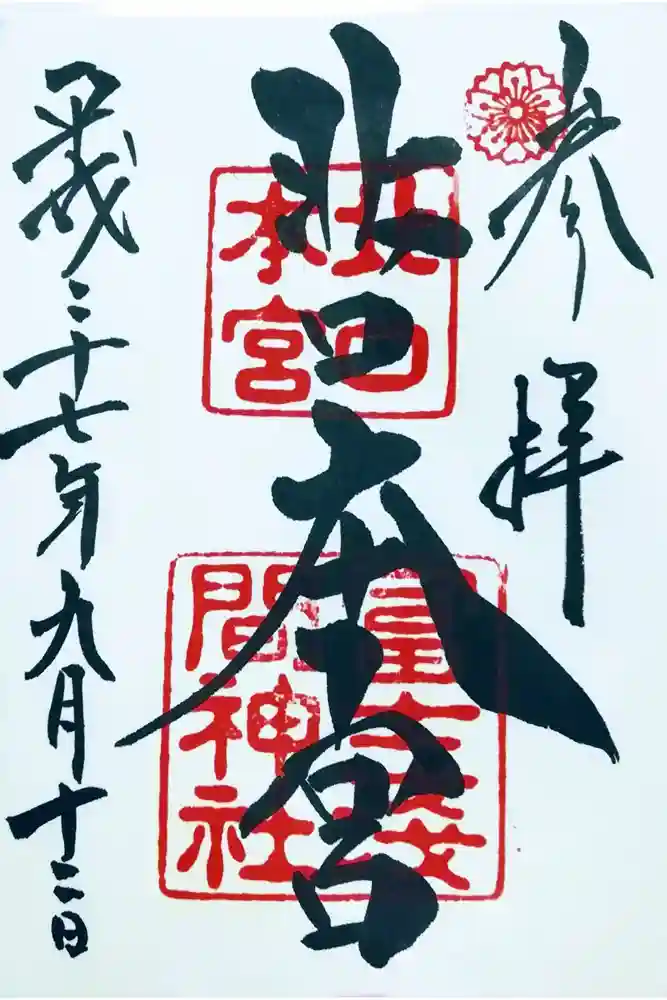 参拝
北口本宮
北口
本宮
冨士淺
間神社
平成二十七年九月十二日